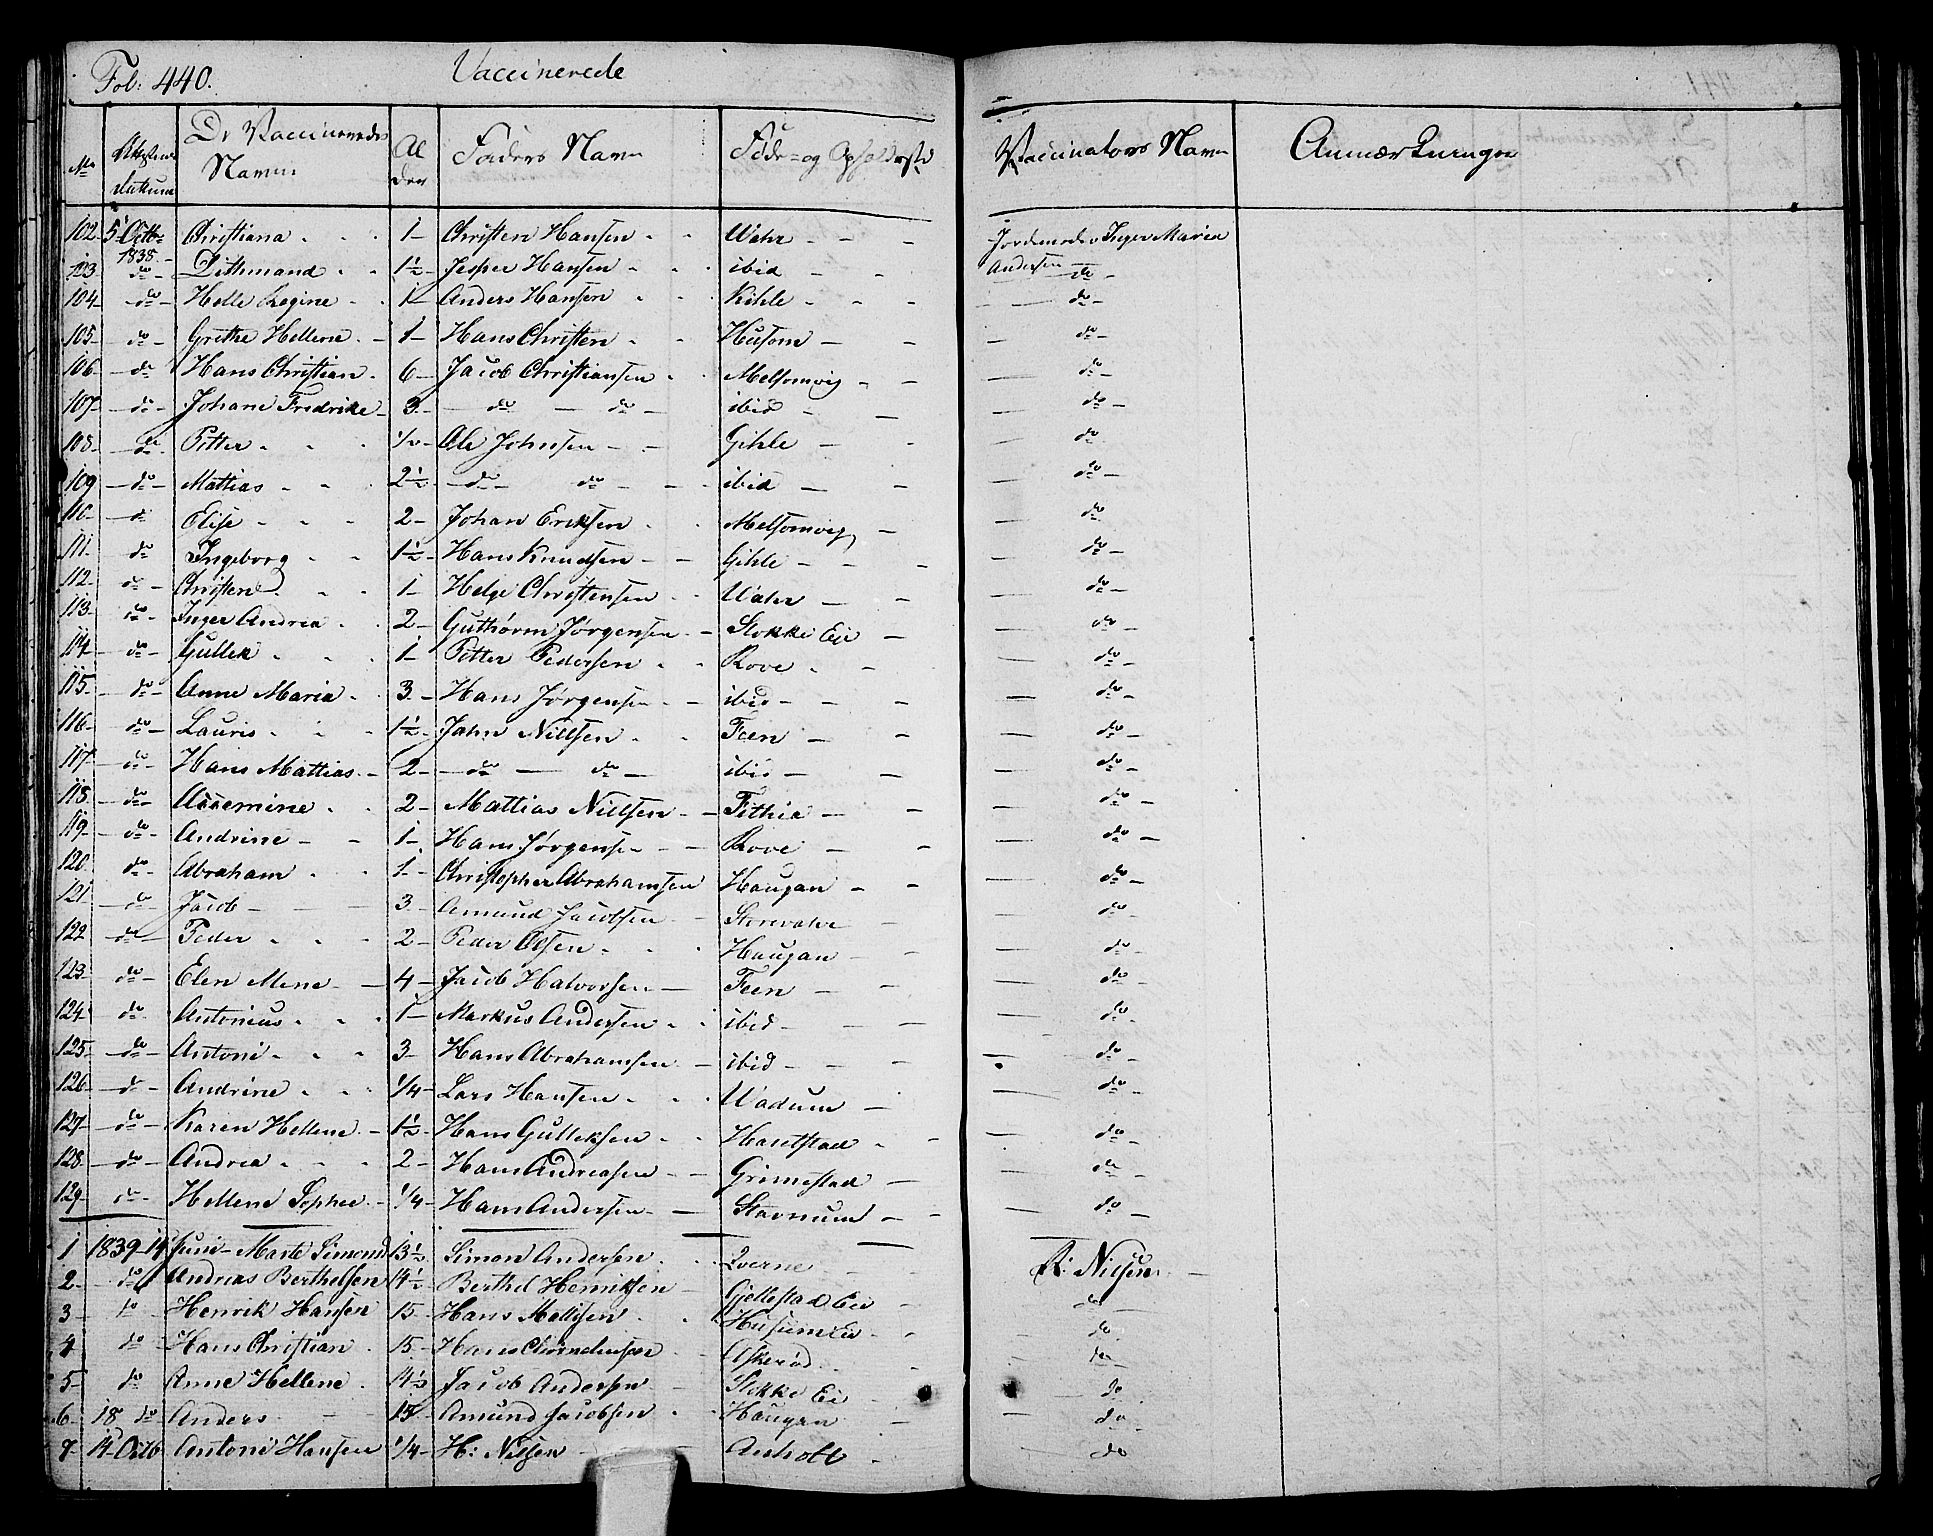 Fol: 440. Vaccinerede
No Attestens Datum De Vaccineredes Navne Al der Faders Navn Føde- og Opholdssted Vaccinators Navn Anmærkninger
102 5 Octbr 1838 Christiana 1 Christen Hansen Wahr Jordemoder Inger Maria Andersen
103 do Dithmand 1½ Jesper Hansen ibid do
104 do Helle Regine 1 Anders Hansen Kihle do
105 do Grethe Hellene 1 Hans Christen Husom do
106 do Hans Christian 6 Jacob Christiansen Melsomvig do
107 do Johane Fredrike 3 do do ibid do
108 do Petter ½ Ole Johnsen Gihle do
109 do Mattias 2½ do do ibid do
110 do Elise 2 Johan Eriksen Melsomvig do
111 do Ingeborg 1½ Hans Knudsen Gihle do
112 do Christen 1 Helge Christensen Wahr do
113 do Inger Andrea 2 Guthorm Jørgensen Stokke Eie do
114 do Gullek 1 Petter Pedersen Rove do
115 do Anne Maria 3 Hans Jørgensen ibid do
116 do Lauris 1½ Jahn Nillsen Feen do
117 do Hans Mattias 2 do do ibid do
118 do Assemine 2 Mattias Nillsen Fithia do
119 do Andrine 1 Hans Jørgensen Rove do
120 do Abraham 1 Christopher Abrahamsen Haugan do
121 do Jacob 3 Amund Jacobsen Storevahr do
122 do Peder 2 Peder Olsen Haugan do
123 do Elen Mene 4 Jacob Halvorsen Feen do
124 do Antonius 1 Markus Andersen ibid do
125 do Antoni 3 Hans Abrahamsen ibid do
126 do Andrine 1/4 Lars Hansen Wadum do
127 do Karen Hellene 1½ Hans Gulleksen Haretstad do
128 do Andrea 2 Hans Andreasen Grimestad do
129 do Hellene Sophie 1/4 Hans Andersen Stavnum do
1 1839 14 Juni Marte Simonsd 13½ Simon Andersen Qverne R: Nilsen
2 do Andreas Berthelsen 14½ Berthel Henriksen Gjellestad Eie
3 do Henrik Hansen 15 Hans Mellisen Husum Eie do
4 do Hans Christian 15 Hans Askerød do
5 do Anne Hellene 14½ Jacob Andersen Stokke Eie do
6 18 do Anders 15 Amund Jacobsen Haugan do
7 14 Octb Antoni Hansen 1/4 H: Nilsen Anholt do